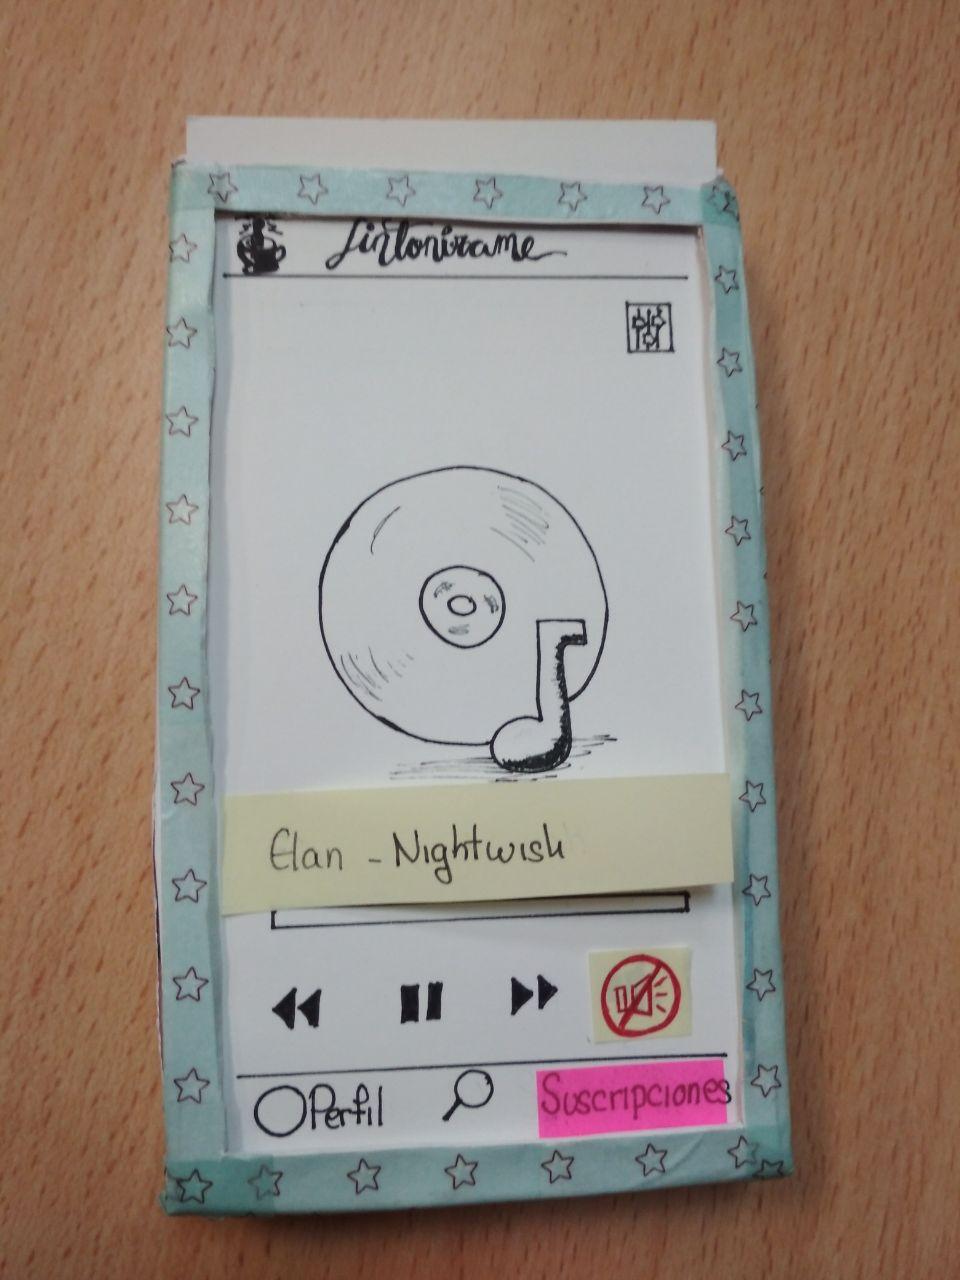 Sintonízame
Elan - Nightwish
Perfil
Suscripciones